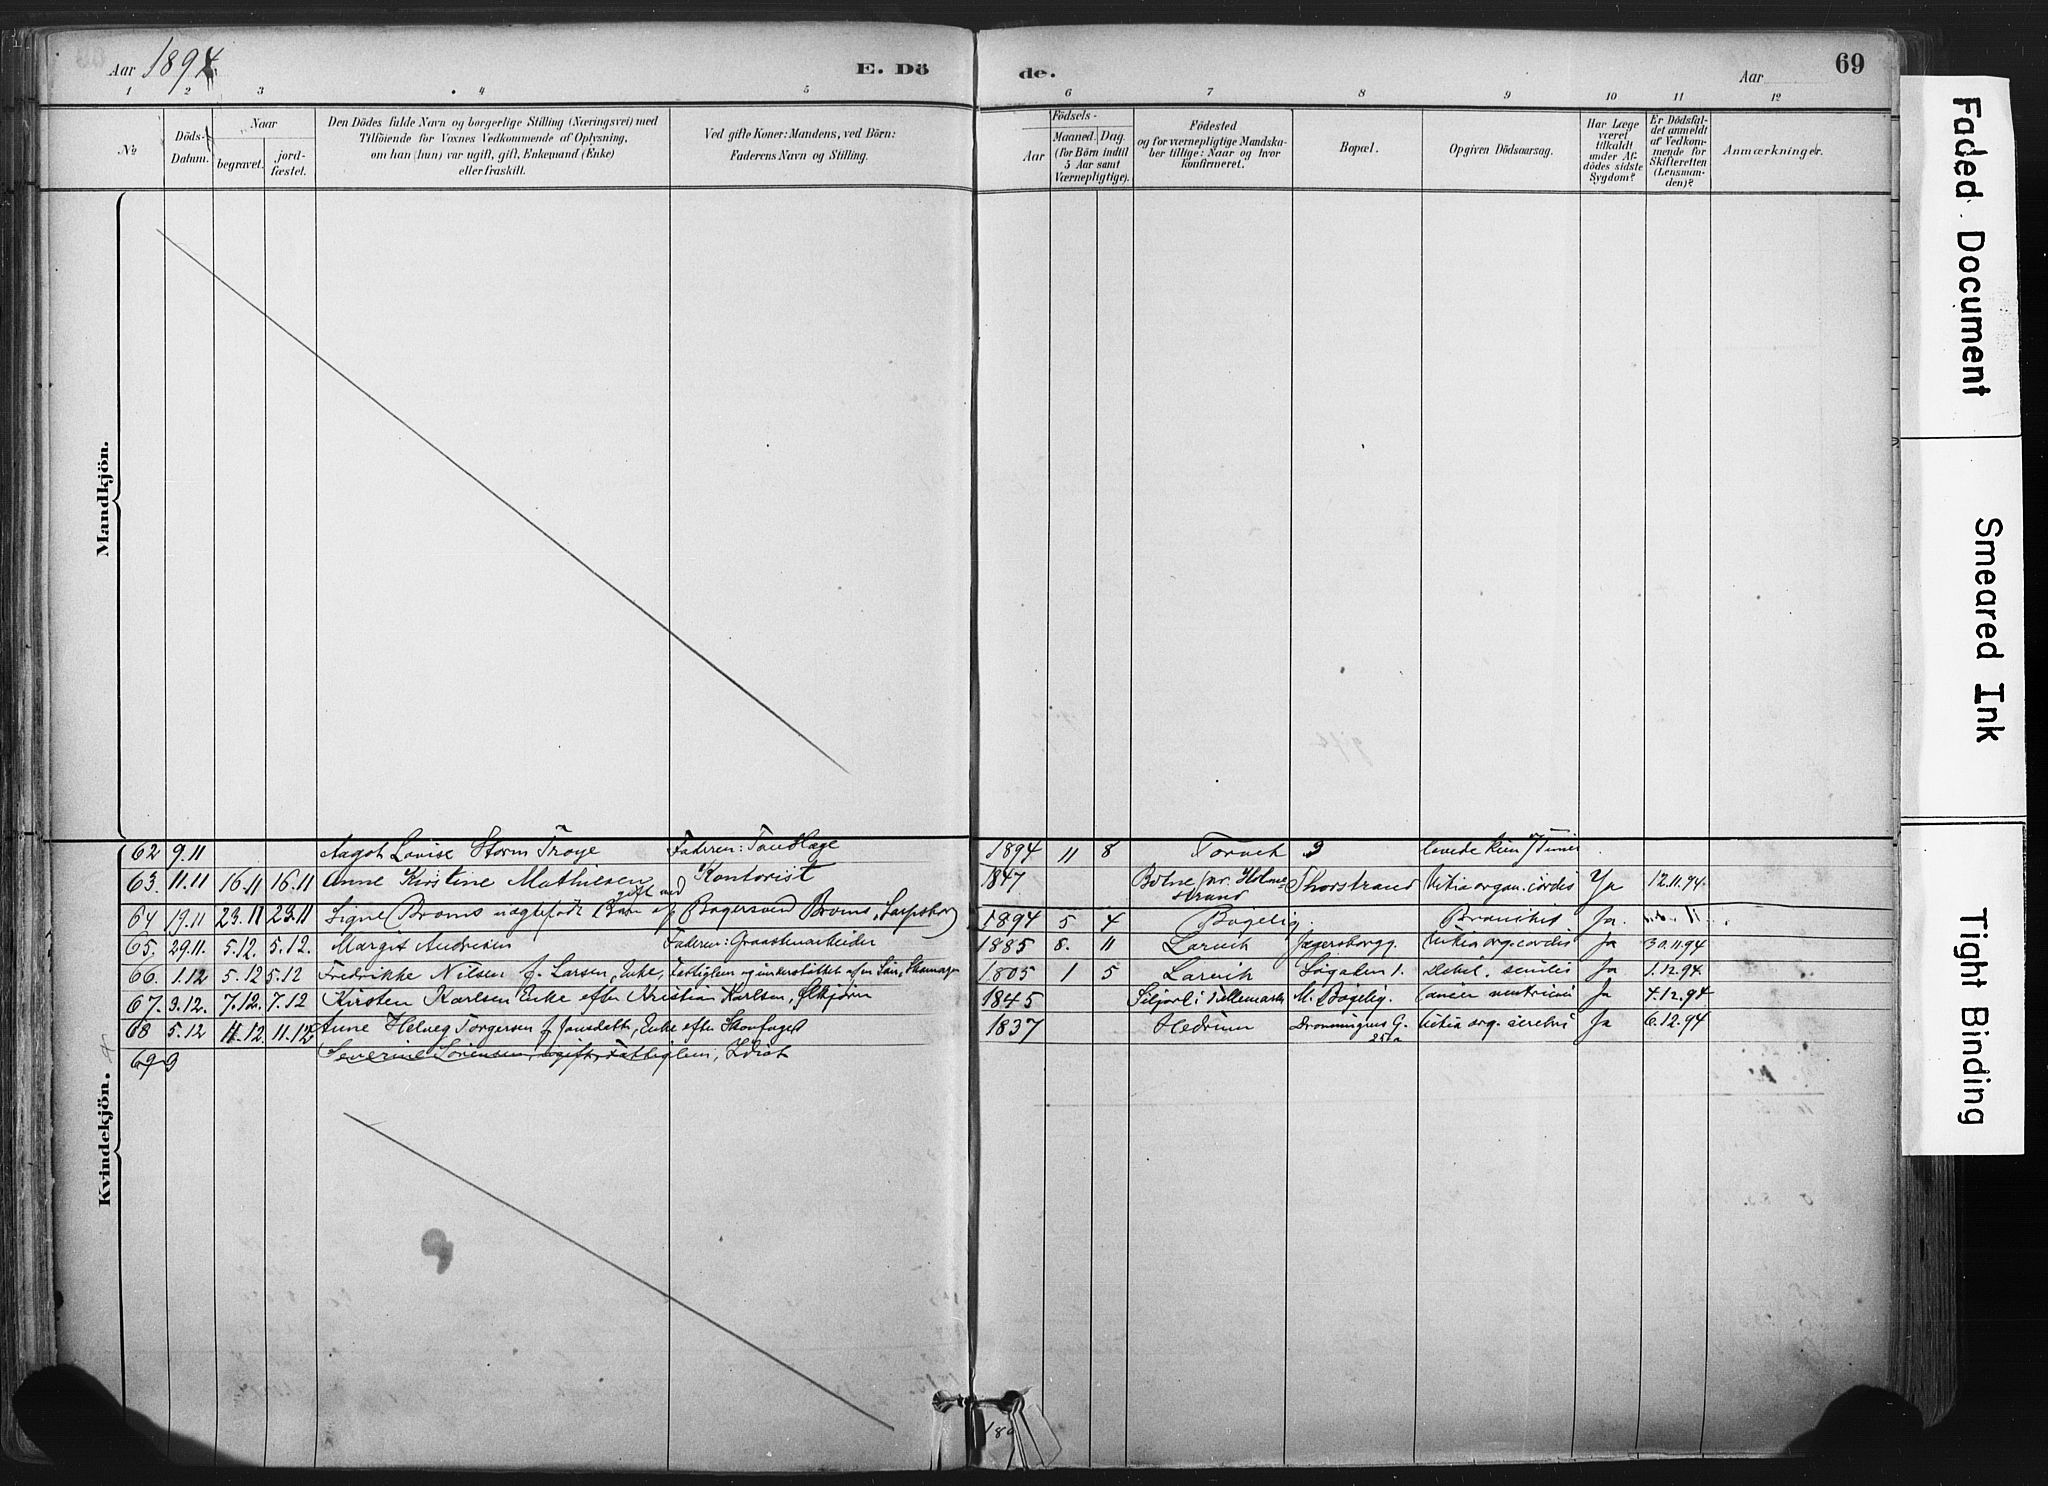 Aar 1894. E. Dö de. Aar 69
1 2 3 4 5 6 7 8 9 10 11 12
No
Döds-Datum.
Naar
begravet. jordfæstet.
Den Dödes fulde Navn og borgerlige Stilling (Næringsvei) med
Tilföiende for Voxnes Vedkommende af Oplysning,
om han (hun) var ugift, gift, Enkemand (Enke)
eller fraskilt.
Ved gifte Koner: Mandens, ved Börn:
Faderens Navn og Stilling.
Aar
Födsels-
Maaned. Dag.
(for Börn indtil
5 Aar samt
Værnepligtige).
Födested
og for værnepligtige Mandskaber tillige: Naar og hvor
konfirmeret.
Bopæl.
Opgiven Dödsaarsag.
Har Læge
været
tilkaldt
under Afdödes sidste
Sygdom?
Er Dödsfaldet anmeldt
af Vedkommende for
Skifteretten
(Lensmanden)?
Anmærkninger.
Mandkjön.
Kvindekjön.
62 9.11 Aagot Lovise Storm Troye Faderen: Tandlæge 1894 11 8 Torvet 3 levede kun 7 Timer
63. 11.11 16.11 16.11 Anne Kirstine Mathiesen gift med Kontorist 1847 Botne pr. Holmestrand Thorstrand Vitia organ. cordis Ja 12.11.94.
64 19.11 23.11 23.11 Signe Broms uægtefødt Barn af Bagersvend Broms, Sarpsborg 1894 5 4 Bøgelig. Bronchit Ja.
65. 29.11. 5.12. 5.12. Margit Andresen Faderen: Graastenarbeider 1885 8. 11 Larvik Jegersborgg. Vitia org. cordis Ja 30.11.94
66. 1.12 5.12 5.12 Fredrikke Nilsen f. Larsen, Enke, Fattiglem og understøttet af en Søn, Skomager 1805 1 5 Larvik Søgaden 1. Debil. senilis Ja 1.12.94.
67. 3.12. 7.12. 7.12 Kirsten Karlsen Enke efter Kristian Karlsen, 1845 Siljord i Tellemarken M. Bøgelig. Cancer ventriculi Ja 4.12.94
68 5.12 11.12 11.12 Anne Helvig Torgersen f. Jonsdatt., Enke efter Skonfaget 1837 Hedrum Dronningens G. 25a Vitia org. cerebri Ja 6.12.94
69 9 Severine Sørensen, ugift, Fattiglem, Idiot
180
Faded Document
Smeared Ink
Tight Binding